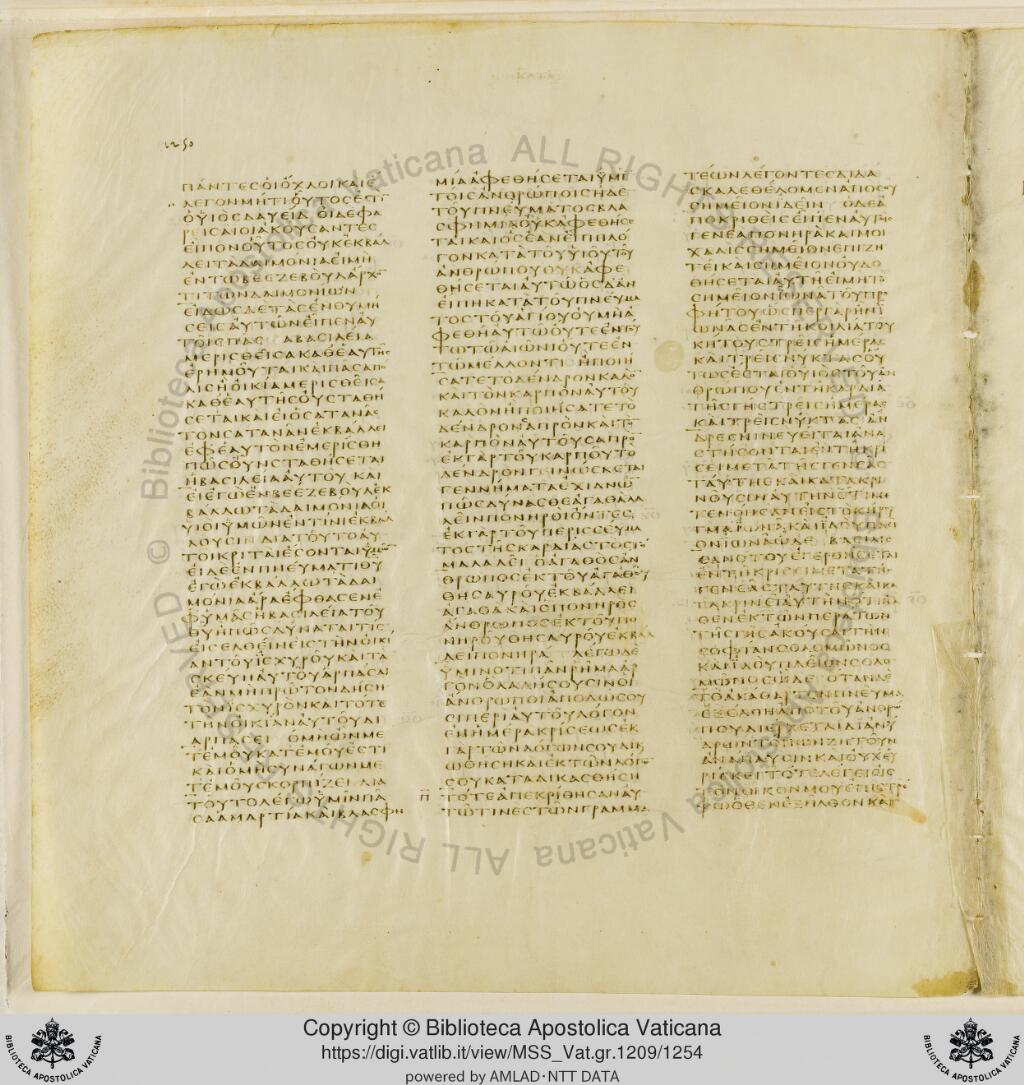 ΚΑΤΑ
1250
ΠΑΝΤΕСΟΙΟΧΛΟΙΚΑΙΕ
ΛΕΓΟΝΜΗΤΙΟΥΤΟСΕСΤΙ
ΟΥΙΟСΔΑΥΕΙΔ ΟΙΔΕΦΑ
ΡΕΙСΑΙΟΙΑΚΟΥСΑΝΤΕС
ΕΙΠΟΝΟΥΤΟСΟΥΚΕΚΒΑΛ
ΛΕΙΤΑΔΑΙΜΟΝΙΑΕΙΜΗ
ΕΝΤΩΒΕΕΖΕΒΟΥΛΑΡΧΟ
ΤΙΤΩΝΔΑΙΜΟΝΙΩΝ
ΕΙΔΩСΔΕΤΑСΕΝΘΥΜΗ
СΕΙСΑΥΤΩΝΕΙΠΕΝΑΥ
ΤΟΙСΠΑС ΑΒΑСΙΛΕΙΑ
ΜΕΡΙСΘΕΙСΑΚΑΘΕΑΥΤΗС
ΕΡΗΜΟΥΤΑΙΚΑΙΠΑСΑΠΟ
ΛΙСΗΟΙΚΙΑΜΕΡΙСΘΕΙСΑ
ΚΑΘΕΑΥΤΗСΟΥСΤΑΘΗ
СΕΤΑΙΚΑΙΕΙΟСΑΤΑΝΑС
ΤΟΝСΑΤΑΝΑΝΕΚΒΑΛΛΕΙ
ΕΦΕΑΥΤΟΝΕΜΕΡΙСΘΗ
ΠΩСΟΥΝСΤΑΘΗСΕΤΑΙ
ΗΒΑСΙΛΕΙΑΑΥΤΟΥ ΚΑΙ
ΕΙΕΓΩΕΝΒΕΕΖΕΒΟΥΛΕΚ
ΒΑΛΛΩΤΑΔΑΙΜΟΝΙΑΟΙ
ΥΙΟΙΥΜΩΝΕΝΤΙΝΙΕΚΒΑΛ
ΛΟΥСΙΝ ΔΙΑΤΟΥΤΟΑΥ
ΤΟΙΚΡΙΤΑΙΕСΟΝΤΑΙΥΜΩΝ
ΕΙΔΕΕΝΠΝΕΥΜΑΤΙΘΥ
ΕΓΩΕΚΒΑΛΛΩΤΑΔΑΙ
ΜΟΝΙΑΑΡΑΕΦΘΑСΕΝΕ
ΦΥΜΑСΗΒΑСΙΛΕΙΑΤΟΥ
ΘΥΗΠΩСΔΥΝΑΤΑΙΤΙС
ΕΙСΕΛΘΕΙΝΕΙСΤΗΝΟΙΚΙ
ΑΝΤΟΥΙСΧΥΡΟΥΚΑΙΤΑ
СΚΕΥΗΑΥΤΟΥΑΡΠΑСΑΙ
ΕΑΝΜΗΠΡΩΤΟΝΔΗСΗ
ΤΟΝΙСΧΥΡΟΝΚΑΙΤΟΤΕ
ΤΗΝΟΙΚΙΑΝΑΥΤΟΥΔΙ
ΑΡΠΑСΕΙ ΟΜΗΩΝΜΕ
ΤΕΜΟΥΚΑΤΕΜΟΥΕСΤΙ
ΚΑΙΟΜΗСΥΝΑΓΩΝΜΕ
ΤΕΜΟΥСΚΟΡΠΙΖΕΙ ΔΙΑ
ΤΟΥΤΟΛΕΓΩΥΜΙΝΠΑ
СΑΑΜΑΡΤΙΑΚΑΙΒΛΑСΦΗ
ΜΙΑΑΦΕΘΗСΕΤΑΙΥΜΙ
ΤΟΙСΑΝΘΡΩΠΟΙСΗΔΕ
ΤΟΥΠΝΕΥΜΑΤΟСΒΛΑ
СΦΗΜΙΑΟΥΚΑΦΕΘΗСΕ
ΤΑΙΚΑΙΟСΕΑΝΕΙΠΗΛΟ
ΓΟΝΚΑΤΑΤΟΥΥΙΟΥΤΟΥ
ΑΝΘΡΩΠΟΥΟΥΚΑΦΕ
ΘΗСΕΤΑΙΑΥΤΩΟСΔΑΝ
ΕΙΠΗΚΑΤΑΤΟΥΠΝΕΥΜΑ
ΤΟСΤΟΥΑΓΙΟΥΟΥΜΗΑ
ΦΕΘΗΑΥΤΩΟΥΤΕΕΝΤΟΥ
ΤΩΤΩΑΙΩΝΙΟΥΤΕΕΝ
ΤΩΜΕΛΛΟΝΤΙ ΗΠΟΙΗ
СΑΤΕΤΟΔΕΝΔΡΟΝΚΑΛΟ
ΚΑΙΤΟΝΚΑΡΠΟΝΑΥΤΟΥ
ΚΑΛΟΝΗΠΟΙΗСΑΤΕΤΟ
ΔΕΝΔΡΟΝСΑΠΡΟΝΚΑΙΤΟ
ΚΑΡΠΟΝΑΥΤΟΥСΑΠΡΟ
ΕΚΓΑΡΤΟΥΚΑΡΠΟΥΤΟ
ΔΕΝΔΡΟΝΓΕΙΝΩСΚΕΤΑΙ
ΓΕΝΝΗΜΑΤΑΕΧΙΔΝΩ
ΠΩСΔΥΝΑСΘΕΑΓΑΘΑΛΑ
ΛΕΙΝΠΟΝΗΡΟΙΟΝΤΕС
ΕΚΓΑΡΤΟΥΠΕΡΙССΕΥΜΑ
ΤΟСΤΗСΚΑΡΔΙΑСΤΟСΤΟ
ΜΑΛΑΛΕΙ ΟΑΓΑΘΟСΑΝ
ΘΡΩΠΟСΕΚΤΟΥΑΓΑΘΟΥ
ΘΗСΑΥΡΟΥΕΚΒΑΛΛΕΙ
ΑΓΑΘΑΚΑΙΟΠΟΝΗΡΟС
ΑΝΘΡΩΠΟСΕΚΤΟΥΠΟ
ΝΗΡΟΥΘΗСΑΥΡΟΥΕΚΒΑΛ
ΛΕΙΠΟΝΗΡΑ ΛΕΓΩΔΕ
ΥΜΙΝΟΤΙΠΑΝΡΗΜΑΑΡ
ΓΟΝΟΛΑΛΗСΟΥСΙΝΟΙ
ΑΝΘΡΩΠΟΙΑΠΟΔΩСΟΥ
СΙΠΕΡΙΑΥΤΟΥΛΟΓΟΝ
ΕΝΗΜΕΡΑΚΡΙСΕΩСΕΚ
ΓΑΡΤΩΝΛΟΓΩΝСΟΥΔΙΚΑΙ
ΩΘΗСΗΚΑΙΕΚΤΩΝΛΟΓΩ
СΟΥΚΑΤΑΔΙΚΑСΘΗСΗ
ΤΟΤΕΑΠΕΚΡΙΘΗСΑΝΑΥ
ΤΩΤΙΝΕСΤΩΝΓΡΑΜΜΑ
ΤΕΩΝΛΕΓΟΝΤΕСΔΙΔΑ
СΚΑΛΕΘΕΛΟΜΕΝΑΠΟСΟΥ
СΗΜΕΙΟΝΙΔΕΙΝ ΟΔΕΑ
ΠΟΚΡΙΘΕΙСΕΙΠΕΝΑΥΤΟΙС
ΓΕΝΕΑΠΟΝΗΡΑΚΑΙΜΟΙ
ΧΑΛΙССΗΜΕΙΟΝΕΠΙΖΗ
ΤΕΙΚΑΙСΗΜΕΙΟΝΟΥΔΟ
ΘΗСΕΤΑΙΑΥΤΗΕΙΜΗΤΟ
СΗΜΕΙΟΝΙΩΝΑΤΟΥΠΡΟ
ΦΗΤΟΥΩСΠΕΡΓΑΡΗΝΙ
ΩΝΑСΕΝΤΗΚΟΙΛΙΑΤΟΥ
ΚΗΤΟΥСΤΡΕΙСΗΜΕΡΑС
ΚΑΙΤΡΕΙСΝΥΚΤΑСΟΥ
ΤΩСΕСΤΑΙΟΥΙΟСΤΟΥΑΝ
ΘΡΩΠΟΥΕΝΤΗΚΑΡΔΙΑ
ΤΗСΓΗСΤΡΕΙСΗΜΕΡΑС
ΚΑΙΤΡΕΙСΝΥΚΤΑС ΑΝ
ΔΡΕСΝΙΝΕΥΕΙΤΑΙΑΝΑ
СΤΗСΟΝΤΑΙΕΝΤΗΚΡΙ
СΕΙΜΕΤΑΤΗСΓΕΝΕΑС
ΤΑΥΤΗСΚΑΙΚΑΤΑΚΡΙ
ΝΟΥСΙΝΑΥΤΗΝΟΤΙΜΕ
ΤΕΝΟΗСΑΝΕΙСΤΟΚΗΡΥ
ΓΜΑΙΩΝΑΚΑΙΙΔΟΥΠΛΕΙ
ΟΝΙΩΝΑΩΔΕ ΒΑСΙΛΙС
СΑΝΟΤΟΥΕΓΕΡΘΗСΕΤΑΙ
ΕΝΤΗΚΡΙСΕΙΜΕΤΑΤΗС
ΓΕΝΕΑСΤΑΥΤΗСΚΑΙΚΑ
ΤΑΚΡΙΝΕΙΑΥΤΗΝΟΤΙΗΛ
ΘΕΝΕΚΤΩΝΠΕΡΑΤΩΝ
ΤΗСΓΗСΑΚΟΥСΑΙΤΗΝ
СΟΦΙΑΝСΟΛΟΜΩΝΟС
ΚΑΙΙΔΟΥΠΛΕΙΟΝСΟΛΟ
ΜΩΝΟСΩΔΕ ΟΤΑΝΔΕ
ΤΟΑΚΑΘΑΡΤΟΝΠΝΕΥΜΑ
ΕΞΕΛΘΗΑΠΟΤΟΥΑΝΘΡΩ
ΠΟΥΔΙΕΡΧΕΤΑΙΔΙΑΝΥ
ΔΡΩΝΤΟΠΩΝΖΗΤΟΥΝ
ΑΝΑΠΑΥСΙΝΚΑΙΟΥΧΕΥ
ΡΙСΚΕΙΤΟΤΕΛΕΓΕΙΕΙС
ΤΟΝΟΙΚΟΝΜΟΥΕΠΙСΤΡΕ
ΨΩΟΘΕΝΕΞΗΛΘΟΝΚΑΙ
© Biblioteca Apostolica Vaticana ALL RIGHTS RESERVED
Copyright © Biblioteca Apostolica Vaticana
https://digi.vatlib.it/view/MSS_Vat.gr.1209/1254
powered by AMLAD·NTT DATA
BIBLIOTECA APOSTOLICA VATICANA
BIBLIOTECA APOSTOLICA VATICANA